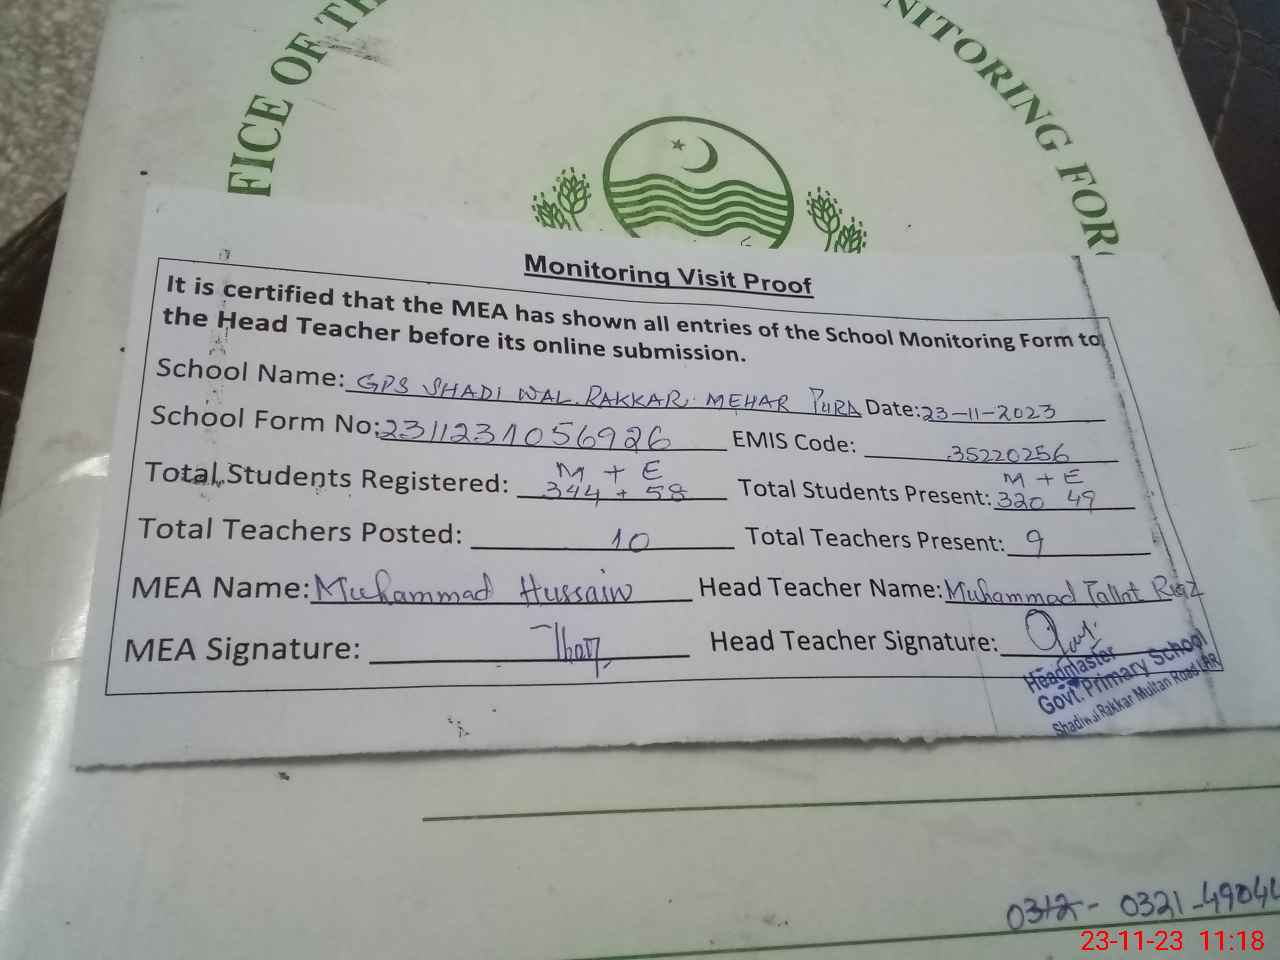 FICE OF TH
NITORING FOR
Monitoring Visit Proof
It is certified that the MEA has shown all entries of the School Monitoring Form to
the Head Teacher before its online submission.
School Name: GPS SHADI WAL RAKKAR MEHAR PURA Date: 23-11-2023
School Form No: 2311231056926 EMIS Code: 35220256
M + E M + E
Total Students Registered: 344 + 58 Total Students Present: 320 49
Total Teachers Posted: 10 Total Teachers Present: 9
MEA Name: Muhammad Hussain Head Teacher Name: Muhammad Tallat Riaz
MEA Signature: Head Teacher Signature:
Headmaster
Govt. Primary School
Shadiwal Rakkar Multan Road LHR
0312- 0321-49044
23-11-23 11:18